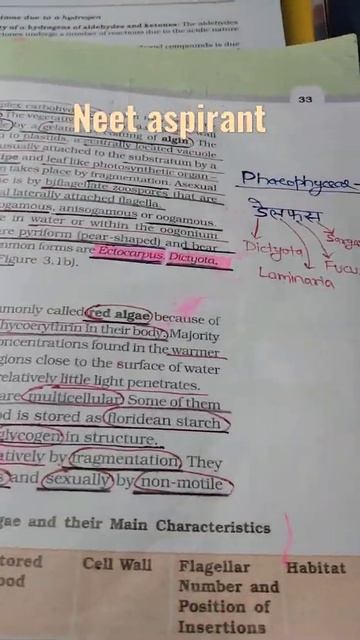 ction due to α hydrogen
ty of α-hydrogens of aldehydes and ketones: The aldehydes
undergo a number of reactions due to the acidic nature
compounds is due
33
Neet aspirant
The vegetative
coating of algin. The
to plastids, a centrally located vacuole
usually attached to the substratum by a
and leaf like photosynthetic organ –
takes place by fragmentation. Asexual
is by biflagellate zoospores that are
laterally attached flagella.
anisogamous or oogamous.
in water or within the oogonium
are pyriform (pear-shaped) and bear
forms are Ectocarpus, Dictyota,
Figure 3.1b).
Phaeophyceae
डेलफस
Dictyota
Laminaria
Fucu
Sarga
monly called red algae because of
hycoerythrin in their body. Majority
oncentrations found in the warmer
gions close to the surface of water
relatively little light penetrates.
are multicellular. Some of them
od is stored as floridean starch
glycogen in structure.
atively by fragmentation. They
and sexually by non-motile
gae and their Main Characteristics
tored
ood
Cell Wall
Flagellar
Number and
Position of
Insertions
Habitat